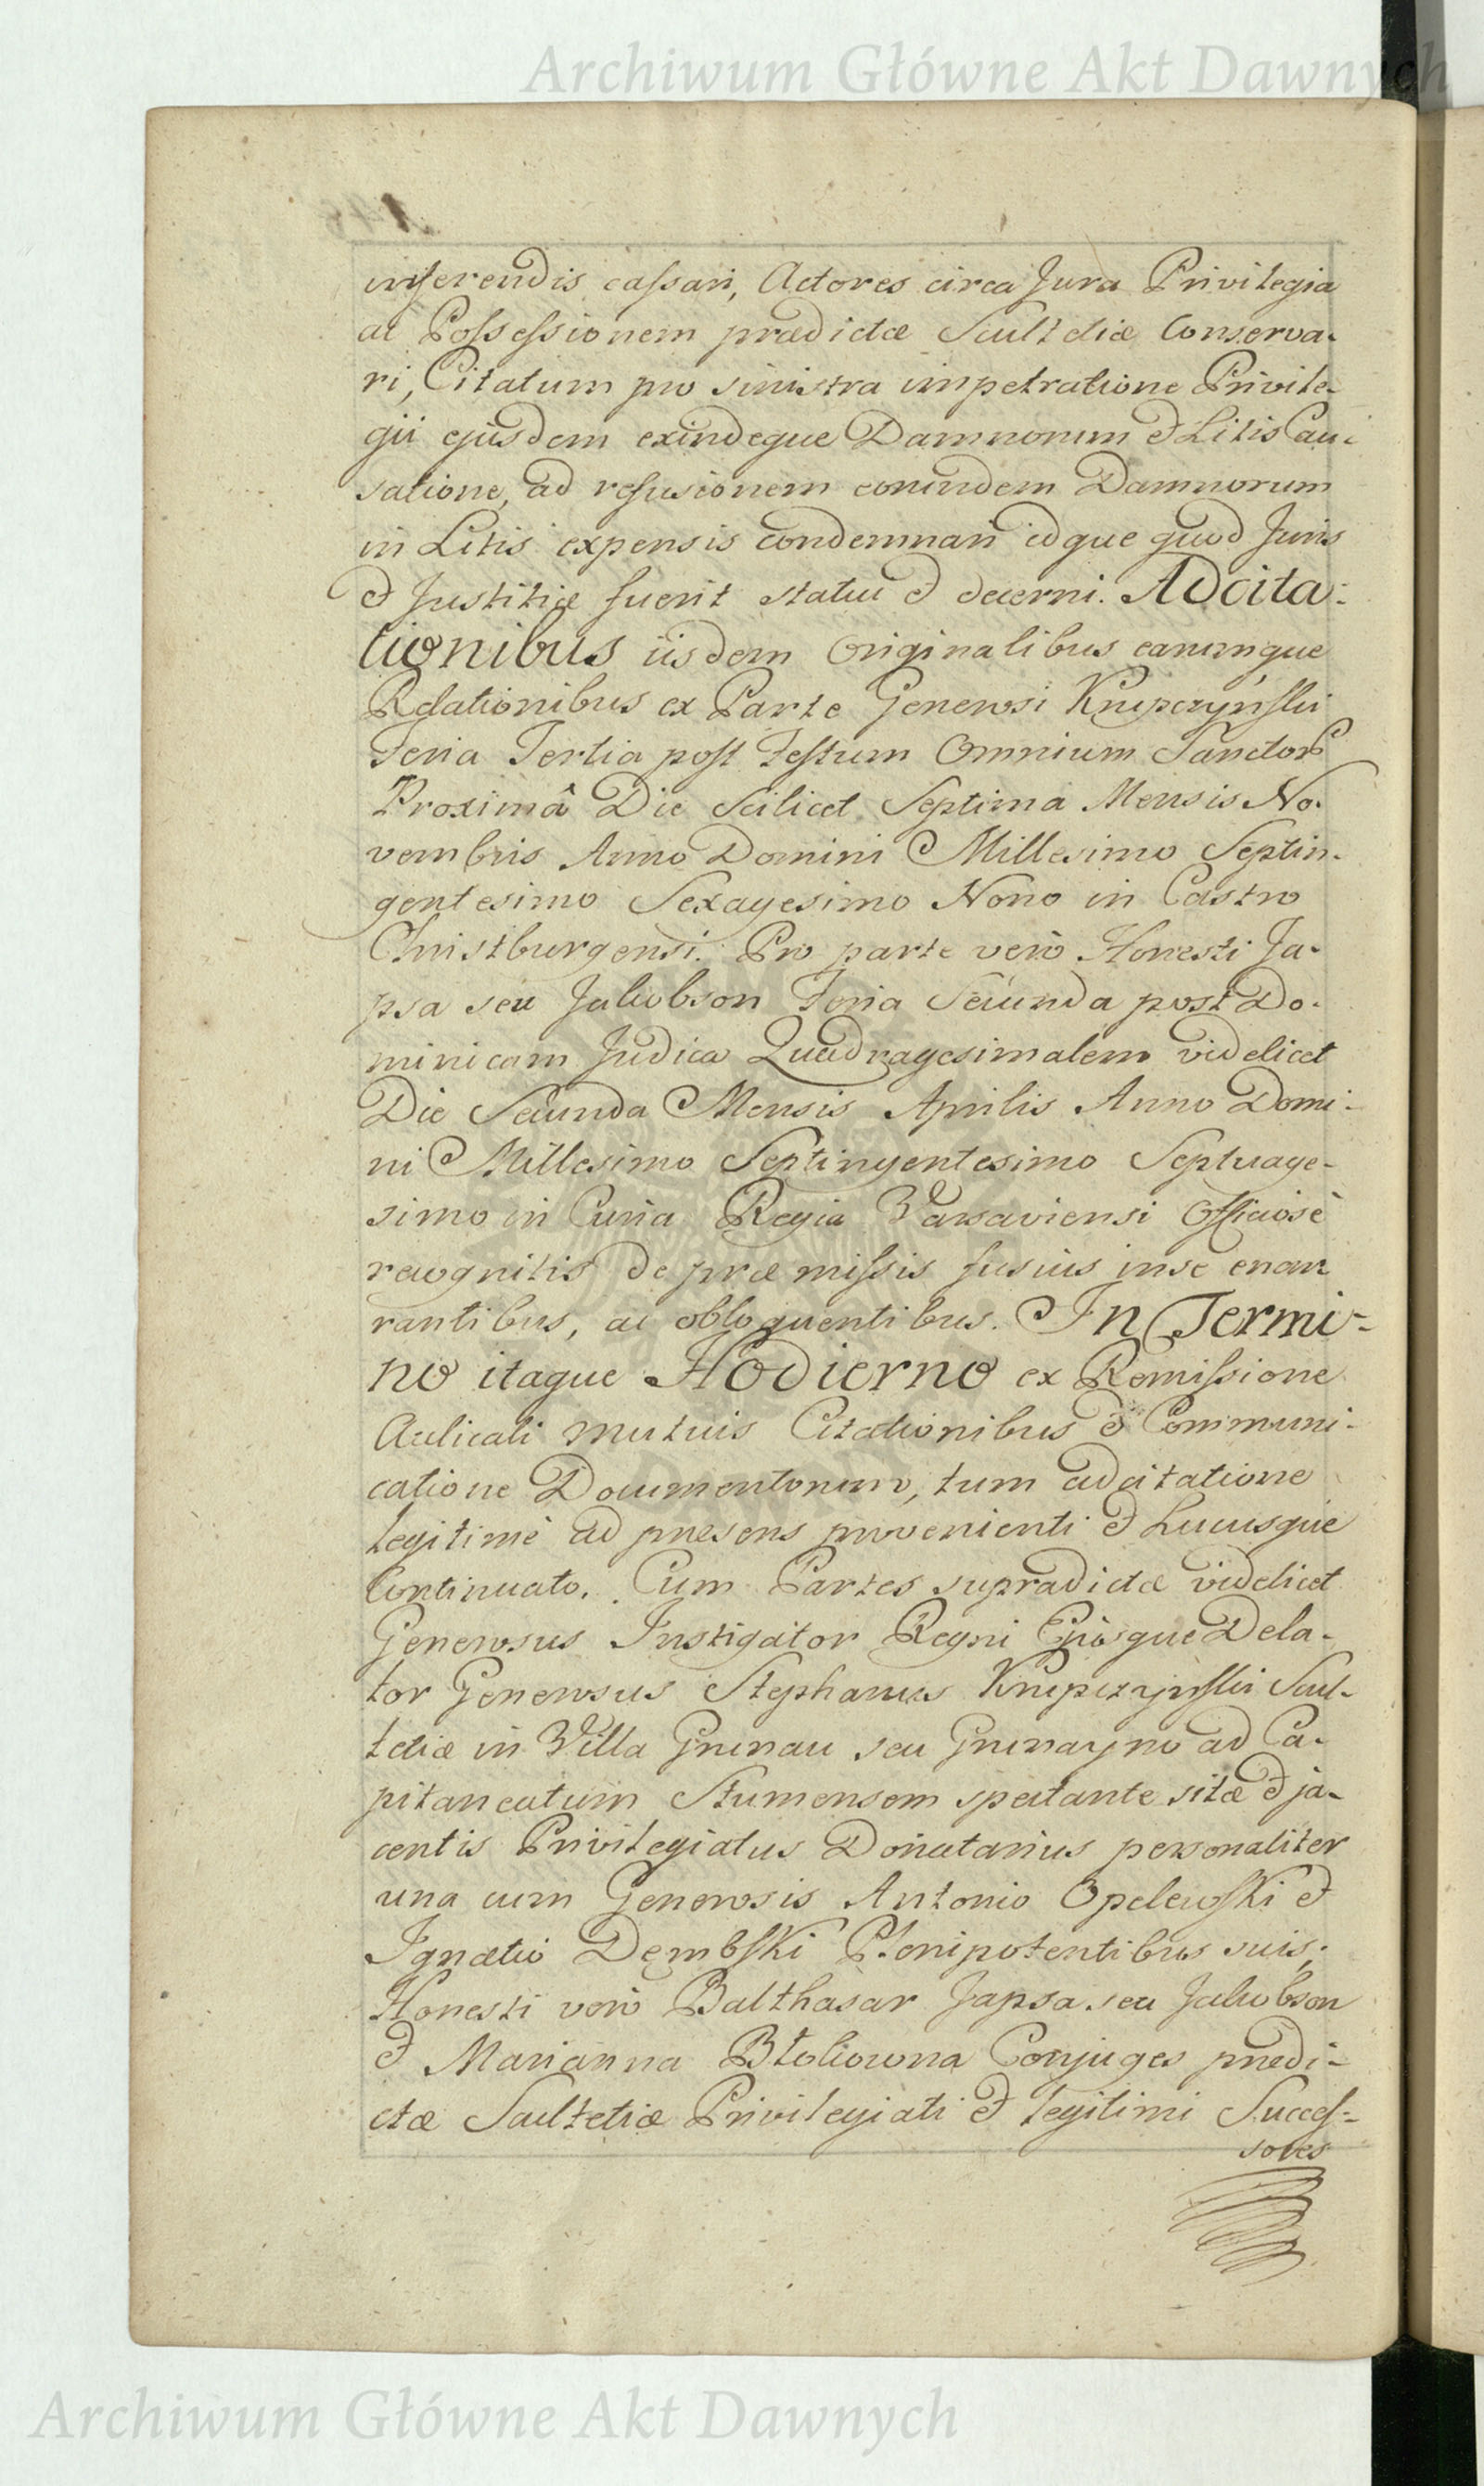 Archiwum Główne Akt Dawnych
inferendis cassari, Actores circa Jura Privilegia
ac Possessionem prædictæ Scultetiæ Conserva-
ri, Citatum pro sinistra impetratione Privile-
gii ejusdem exindeque Damnorum & Litis Cau-
satione, ad refusionem eorundem Damnorum
in Litis expensis condemnari idque quod Juris
& Justitiæ fuerit statui & decerni. Adcita-
tionibus iisdem Originalibus earumque
Relationibus ex Parte Generosi Krupczyński
Feria Tertia post Festum Omnium Sanctor
Proximâ Die Scilicet Septima Mensis No-
vembris Anno Domini Millesimo Septin-
gentesimo Sexagesimo Nono in Castro
Christburgensi. Pro parte verò Honesti Ja-
psa seu Jakobson Feria Secunda post Do-
minicam Judica Quadragesimalem videlicet
Die Secunda Mensis Aprilis Anno Domi-
ni Millesimo Septingentesimo Septuage-
simo in Curia Regia Varsaviensi Officiosè
recognitis de præmissis fusius in se enar
rantibus, ac obloquentibus. In Termi-
no itaque Hodierno ex Remissione
Aulicali mutuis Citationibus & Communi-
catione Documentorum, tum adcitatione
legitimè ad præsens provenienti & hucusque
Continuato. Cum Partes supradictæ videlicet
Generosus Instigator Regni Ejusque Dela-
tor Generosus Stephanus Krupczyński Scul-
tetiæ in Villa Grunau seu Grunayno ad Ca-
pitaneatum Stumensem spectante sitæ & ja-
centis Privilegiatus Donatarius personaliter
una cum Generosis Antonio Opelewski &
Ignatio Dembski Plenipotentibus suis;
Honesti verò Balthasar Japsa seu Jakobson
& Marianna Btoliowna Conjuges prædi-
ctæ Scultetiæ Privilegiati & legitimi Succes-
sores
Archiwum Główne Akt Dawnych